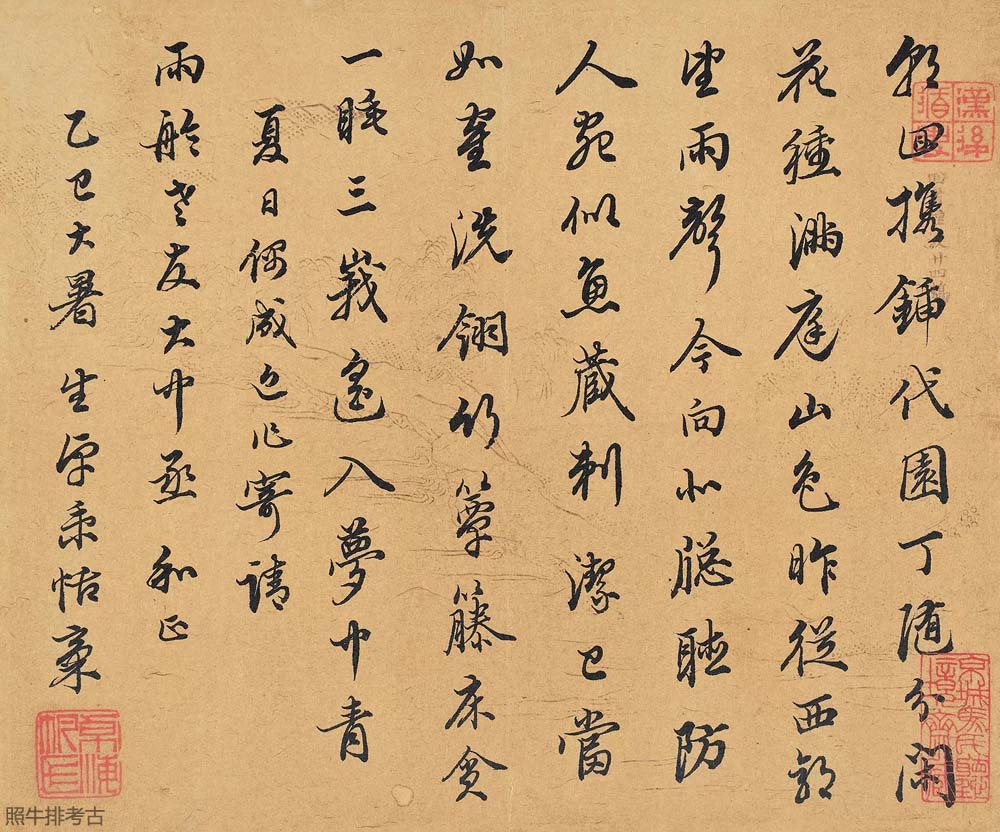 朝回携鍤代園丁随分閑
花種滿庭山色昨從西郭
望雨聲今向北牕聽防
人宛似魚藏刺潔己當
如寉洗翎竹簟籐床貪
一睡三峩遙入夢中青
夏日偶成近作寄請
雨舲老友大中丞 和正
乙巳大暑 生卓秉恬稾
照牛排考古